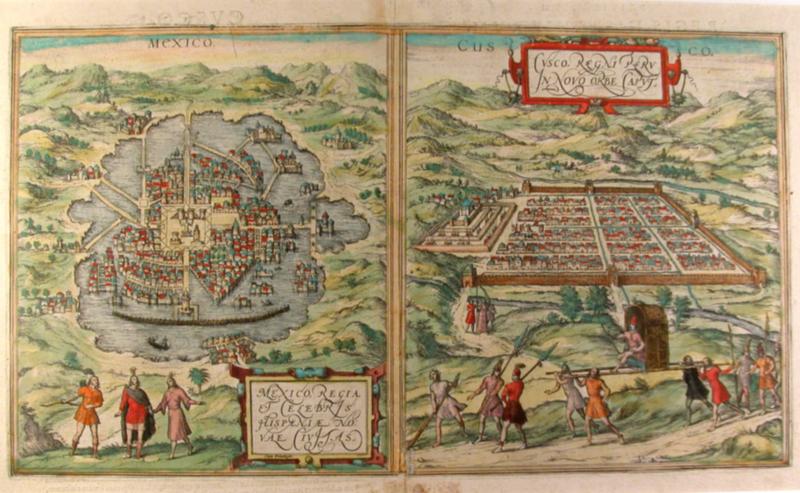 MEXICO.
CUS CO.
CVSCO, REGNI PERV
IN NOVO ORBE CAPVT.
MEXICO, REGIA
ET CELEBRIS
HISPANIÆ NO,
VAE CIVITAS.